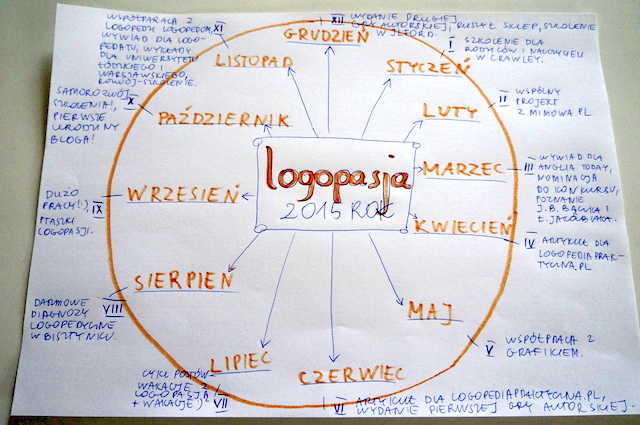 logopasja
2015 ROK
XII WYDANIE DRUGIEJ
GRY AUTORSKIEJ, RUSZAŁ SKLEP, SZKOLENIE
W ILFORD.
GRUDZIEŃ
STYCZEŃ
I
SZKOLENIE DLA
RODZICÓW I NAUCZYCIELI
W CRAWLEY.
LUTY
II
WSPÓLNY
PROJEKT
Z MIMOWA.PL
MARZEC
III
WYWIAD DLA
ANGLIA TODAY,
NOMINACJA
DO KONKURSU,
POZNANIE
J.B. BĄCZKA I
KWIECIEŃ
IV
ARTYKUŁ DLA
LOGOPEDIAPRAK-
TYCZNA.PL
MAJ
V
WSPÓŁPRACA Z
GRAFIKIEM.
CZERWIEC
VI
ARTYKUŁ DLA LOGOPEDIAPRAKTYCZNA.PL,
WYDANIE PIERWSZEJ GRY AUTORSKIEJ.
LIPIEC
VII
CYKL POSTÓW
WAKACJE Z
LOGOPASJĄ
+ WAKACJE :)
SIERPIEŃ
VIII
DARMOWE
DIAGNOZY
LOGOPEDYCZNE
W BISZTYNKU.
WRZESIEŃ
IX
DUŻO
PRACY! :),
PTASZKI
LOGOPASJI.
PAŹDZIERNIK
X
SAMOROZWÓJ,
SZKOLENIA!,
PIERWSZE
URODZINY
BLOGA!
LISTOPAD
XI
WSPÓŁPRACA Z
LOGOPEDY LOGOPEDOM,
WYWIAD DLA LOGO-
PEDATU, WYKŁADY
DLA UNIWERSYTETU
ŁÓDZKIEGO I
WARSZAWSKIEGO,
ROZWÓJ-SZKOLENIE.